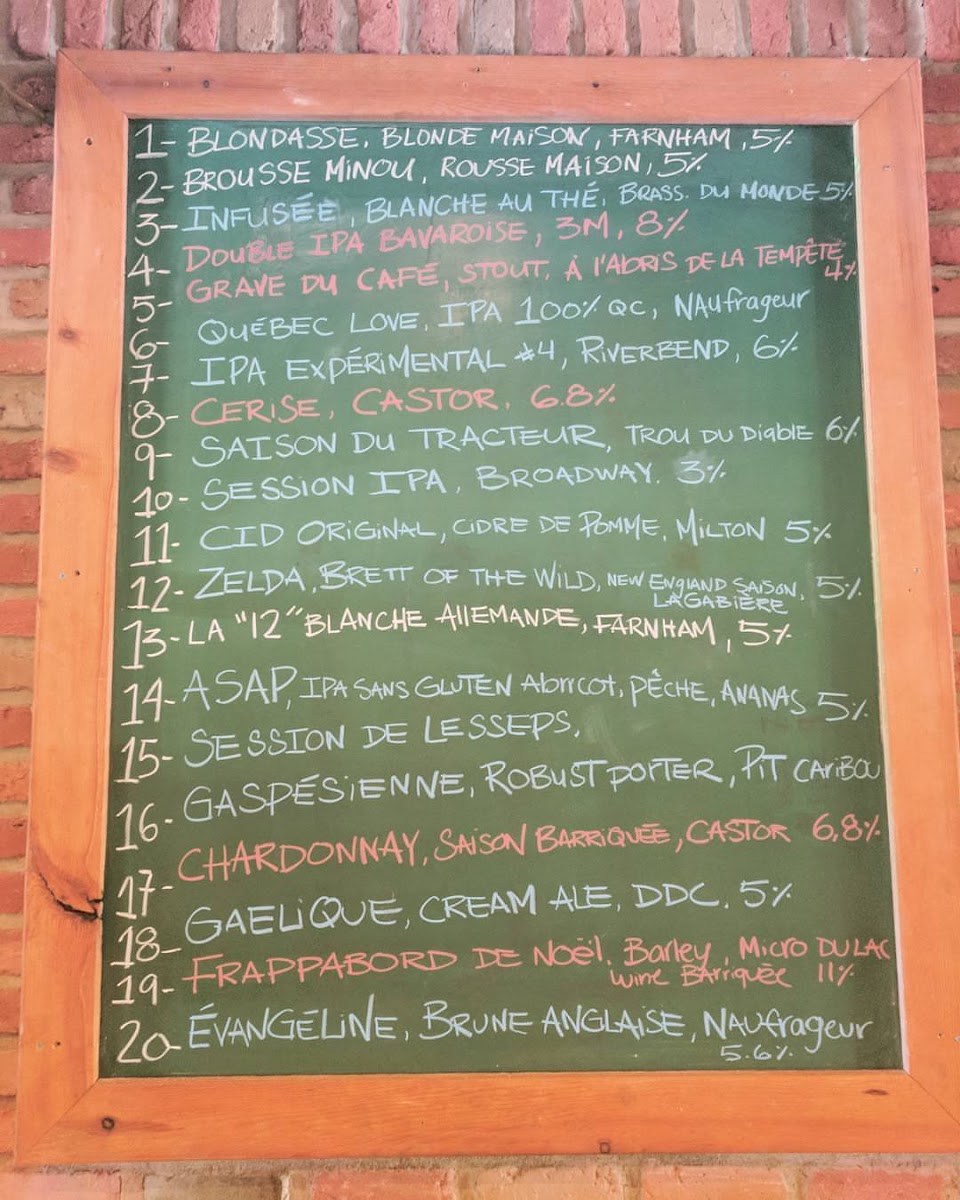 1- BLONDASSE, BLONDE MAISON, FARNHAM, 5%
2- BROUSSE MINOU, ROUSSE MAISON, 5%
3- INFUSÉE, BLANCHE AU THÉ, BRASS. DU MONDE 5%
4- DOUBLE IPA BAVAROISE, 3M, 8%
5- GRAVE DU CAFÉ, STOUT, À l'ABRIS DE LA TEMPÊTE
4%
6- QUÉBEC LOVE, IPA 100% QC, NAufrageur
7- IPA EXPÉRIMENTAL #4, RIVERBEND, 6%
8- CERISE, CASTOR, 6.8%
9- SAISON DU TRACTEUR, TROU DU DiABLE 6%
10- SESSION IPA, BROADWAY. 3%
11- CID ORIGINAL, CIDRE DE POMME, MILTON 5%
12- ZELDA, BRETT OF THE WILD, NEW ENGLAND SAISON, 5%
LAGABIÈRE
13- LA "12" BLANCHE AllEMANDE, FARNHAM, 5%
14- ASAP, IPA SANS GLUTEN Abricot, PÊCHE, ANANAS 5%
15- SESSION DE LESSEPS,
16- GASPÉSIENNE, ROBUST PORTER, PiT CARiBOU
17- CHARDONNAY, SAISON BARRIQUÉE, CASTOR 6,8%
18- GAELIQUE, CREAM ALE, DDC. 5%
19- FRAPPABORD DE NOël, Barley, MICRO DU LAC
wine BArriquée 11%
20- ÉVANGELINE, BRUNE ANGLAISE, NAufrageur
5.6%